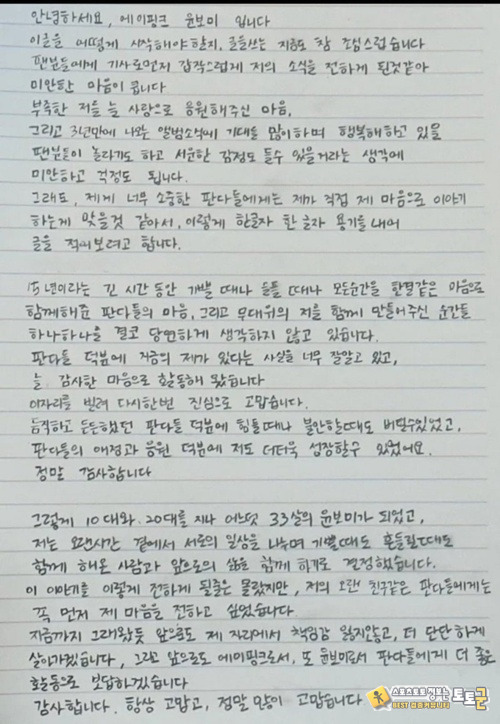 안녕하세요, 에이핑크 윤보미 입니다
이글을 어떻게 시작해야할지, 글을쓰는 지금도 참 조심스럽습니다
팬분들에게 기사로먼저 갑작스럽게 저의 소식을 전하게 된것같아
미안한 마음이 큽니다
부족한 저를 늘 사랑으로 응원해주신 마음,
그리고 3년만에 나오는 앨범소식에 기대를 많이하며 행복해하고 있을
팬분들이 놀라기도 하고 서운한 감정도 들수 있을거라는 생각에
미안하고 걱정도 됩니다.
그래도, 제게 너무 소중한 판다들에게는 제가 직접 제 마음으로 이야기
하는게 맞을것 같아서, 이렇게 한글자 한 글자 용기를 내어
글을 적어보려고 합니다.
15년이라는 긴 시간 동안 기쁠 때나 슬플 때나 모든순간을 한결같은 마음으로
함께해준 판다들의 마음, 그리고 무대위의 저를 함께 만들어주신 순간들
하나하나를 결코 당연하게 생각하지 않고 있습니다.
판다들 덕분에 지금의 제가 있다는 사실을 너무 잘알고 있고,
늘 감사한 마음으로 활동해 왔습니다
이자리를 빌려 다시한번 진심으로 고맙습니다.
듬직하고 든든했던 판다들 덕분에 힘들때나 불안할때도 버틸수있었고,
판다들의 애정과 응원 덕분에 저도 더더욱 성장할수 있었어요.
정말 감사합니다
그렇게 10대와 20대를 지나 어느덧 33살의 윤보미가 되었고,
저는 오랜시간 곁에서 서로의 일상을 나누며 기쁠때도 흔들릴때도
함께 해온 사람과 앞으로의 삶을 함께 하기로 결정했습니다.
이 이야기를 이렇게 전하게 될줄은 몰랐지만, 저의 오랜 친구같은 판다들에게는
꼭 먼저 제 마음을 전하고 싶었습니다
지금까지 그래왔듯 앞으로도 제 자리에서 책임감 잃지않고, 더 단단하게
살아가겠습니다, 그리고 앞으로도 에이핑크로서, 또 윤보미로서 판다들에게 더 좋은
활동으로 보답하겠습니다
감사합니다. 항상 고맙고, 정말 많이 고맙습니다
스포츠토토 정보는
BEST 업종커뮤니티
토토군